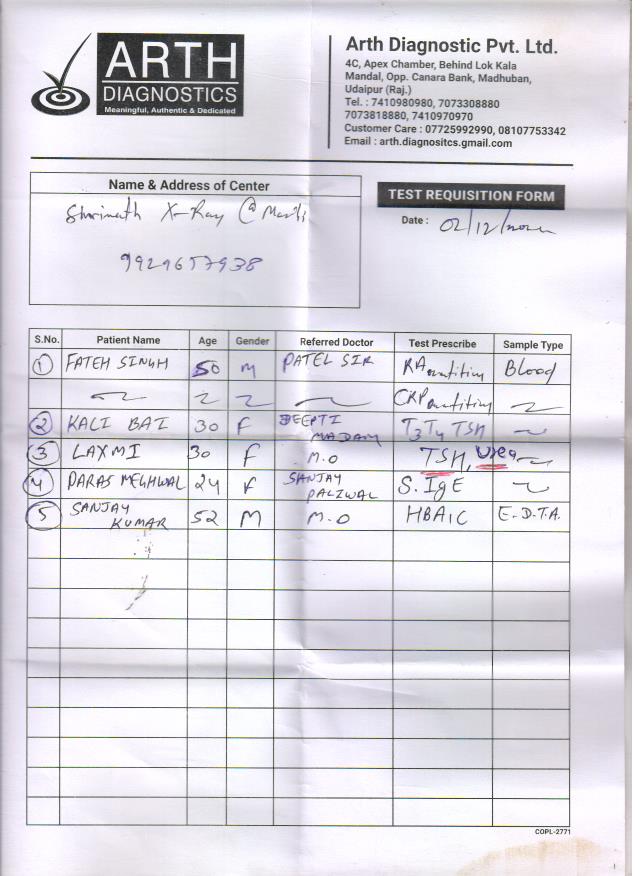 ARTH
DIAGNOSTICS
Meaningful, Authentic & Dedicated
Arth Diagnostic Pvt. Ltd.
4C, Apex Chamber, Behind Lok Kala
Mandal, Opp. Canara Bank, Madhuban,
Udaipur (Raj.)
Tel. : 7410980980, 7073308880
7073818880, 7410970970
Customer Care : 07725992990, 08107753342
Email : arth.diagnositcs.gmail.com
Name & Address of Center
Shrinath X-Ray @
9929657938
TEST REQUISITION FORM
Date : 02/12/
S.No. Patient Name Age Gender Referred Doctor Test Prescribe Sample Type
1 FATEH SINGH 50 M PATEL SIR RA Blood
CRP
2 KALI BAI 30 F DEEPTI MADAM T3 T4 TSH
3 LAXMI 30 F M.O TSH, Urea
4 PARAS MEGHWAL 24 F SANJAY PALIWAL S. IgE
5 SANJAY KUMAR 52 M M.O HBA1C E.D.T.A.
COPL-2771